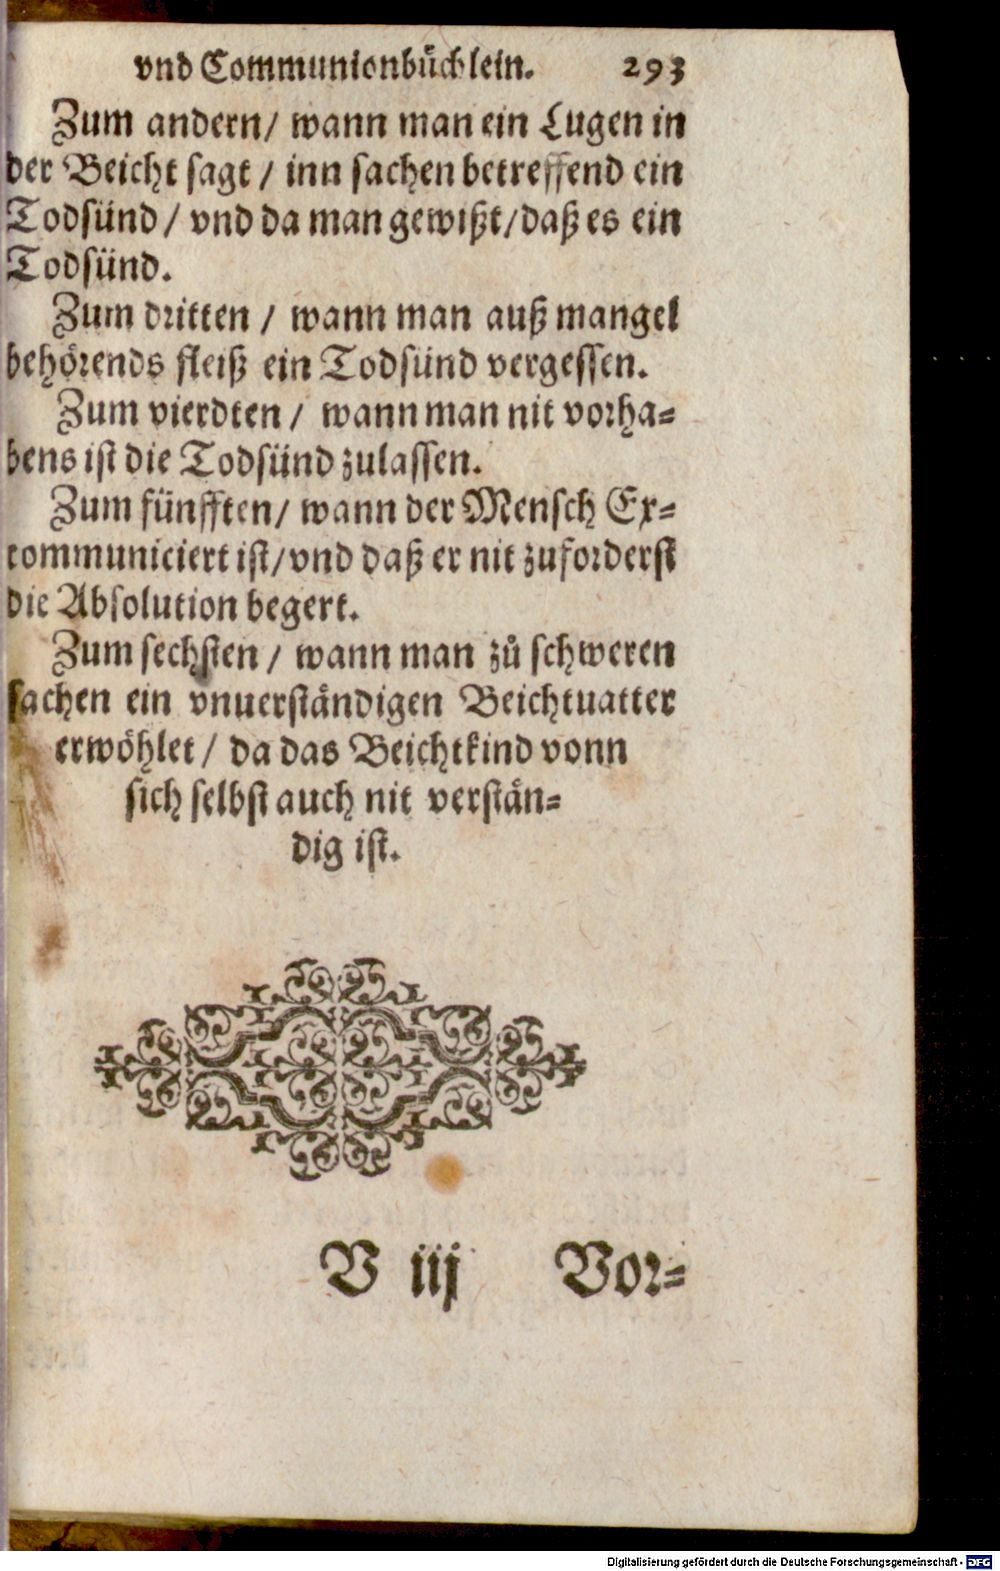 vnd Communionbüchlein. 293
Zum andern/ wann man ein Lugen in
der Beicht sagt / inn sachen betreffend ein
Todsünd / vnd da man gewißt/daß es ein
Todsünd.
Zum dritten / wann man auß mangel
behörends fleiß ein Todsünd vergessen.
Zum vierdten / wann man nit vorha-
bens ist die Todsünd zulassen.
Zum fünfften/ wann der Mensch Ex-
communiciert ist/vnd daß er nit zuforderst
die Absolution begert.
Zum sechsten / wann man zů schweren
sachen ein vnuerständigen Beichtuatter
erwöhlet / da das Beichtkind vonn
sich selbst auch nit verstän-
dig ist.
V iij Vor-
Digitalisierung gefördert durch die Deutsche Forschungsgemeinschaft - DFG